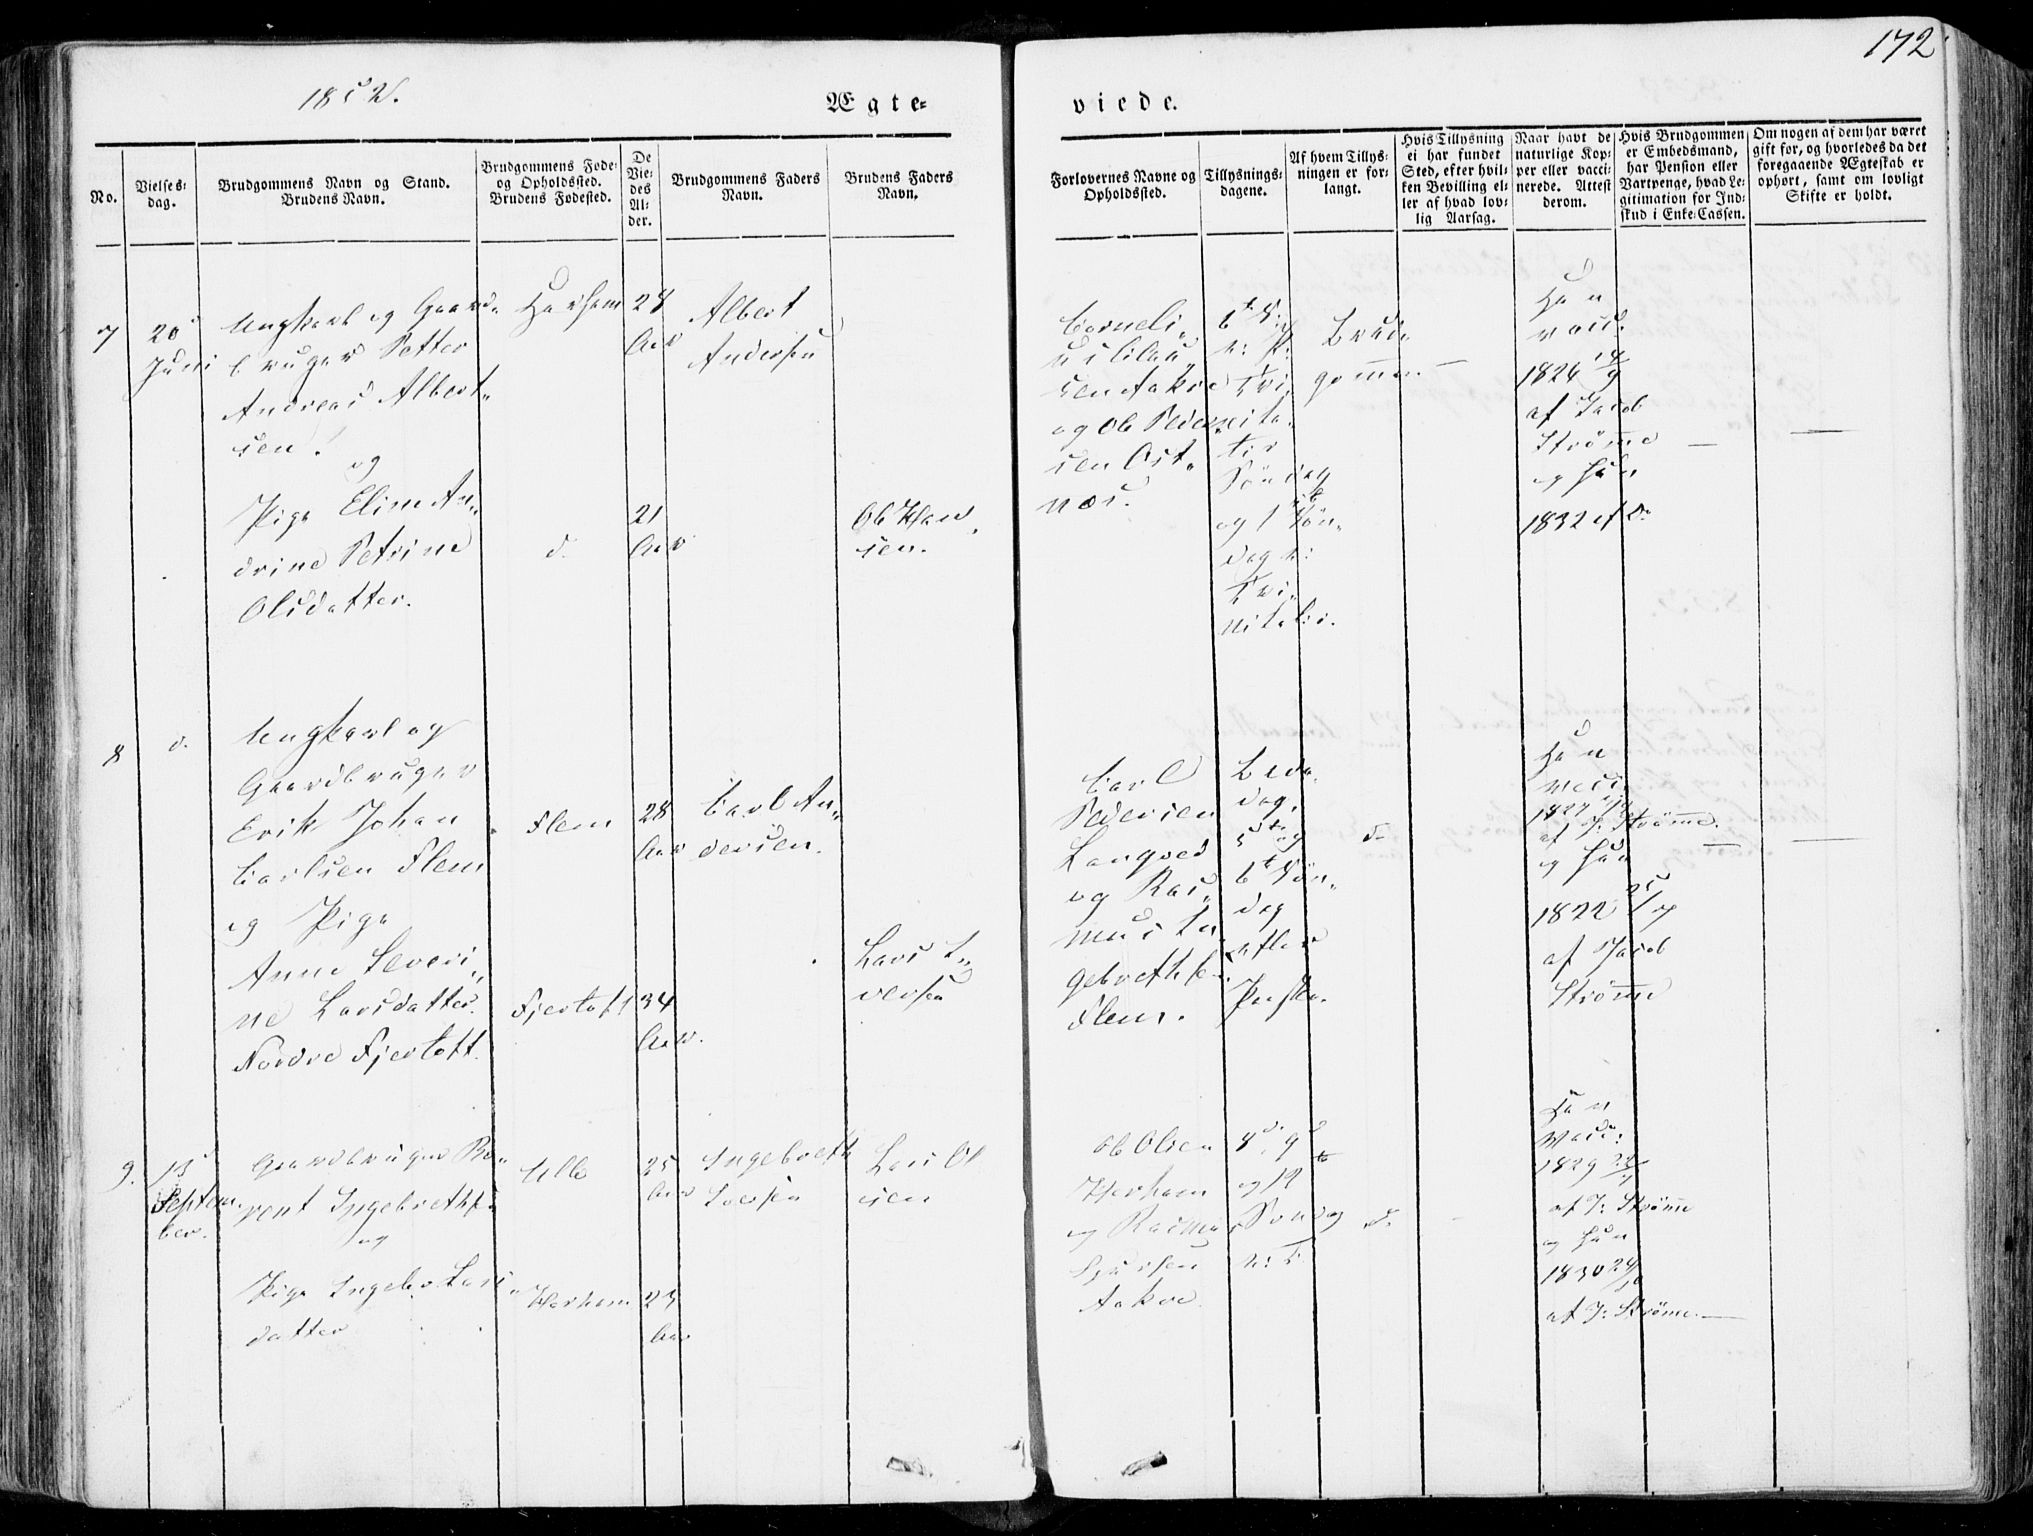 172
1852.
Ægte=
viede.
No.
Vielses=
dag.
Brudgommens Navn og Stand.
Brudens Navn.
Brudgommens Føde=
og Opholdssted.
Brudens Fødested.
De
Vie=
des
Al=
der.
Brudgommens Faders
Navn.
Brudens Faders
Navn.
Forlovernes Navne og
Opholdssted.
Tillysnings=
dagene.
Af hvem Tillys=
ningen er for=
langt.
Hvis Tillysning
ei har fundet
Sted, efter hvil=
ken Bevilling el=
ler af hvad lov=
lig Aarsag.
Naar havt de
naturlige Kop=
per eller vacci=
nerede. Attest
derom.
Hvis Brudgommen
er Embedsmand,
har Pension eller
Vartpenge, hvad Le=
gitimation for Ind=
skud i Enke-Cassen.
Om nogen af dem har været
gift før, og hvorledes da det
foregaaende Ægteskab er
ophørt, samt om lovligt
Skifte er holdt.
7
20
Juni
Ungkarl og Gaard„
bruger Petter
Andreas Albert„
sen.
og
Pige Eline An„
drine Petrine
Olsdatter.
Harham
d.
28
Aar
21
Aar
Albert
Andersen
Ole Han
sen.
Corneli„
us
sen Aakre
og Ole Peder
sen Øst„
næs.
Søndag
og 1 Søn„
dag
Tri„
nitatis.
Brud„
gommen
Han
vacc:
1824 14/9
af Jacob
Strømme
og Hun
1832 af do
8
d.
Ungkarl og
Gaardbruger
Erik Johan
Carlsen Flem
og Pige
Anne Severi„
ne Larsdatter
Nordre Fjertoft.
Flem
Fjertoft
28
Aar
34
Aar.
Carl An„
dersen.
Lars I„
versen
Carl
Pedersen
Longved
og Ras„
mus In
gebrethsen
Flem.
Bede
dag,
5te og
6t Søn„
dag
efter
Paaske.
do
Han
vacc:
1827
af J: Strømme.
og Hun
1822 25/7
af Jacob
Strømme
9.
13
Septem
ber.
Gaardbruger Be„
rent Ingebrethsen
og
Pige Ingebor Lars„
datter
Ulle
Harham
25
Aar
23
Aar
Ingebreth
Iversen
Lars Ol
sen
Ole Olsen
Harham
og Rasmus
Sjursen
Aakre.
8d, 9d
og 12te
Søndag
e: T:
d.
Han
Vacc:
1829
af J: Strømme
og Hun
1830 24/10
af J: Strømme.